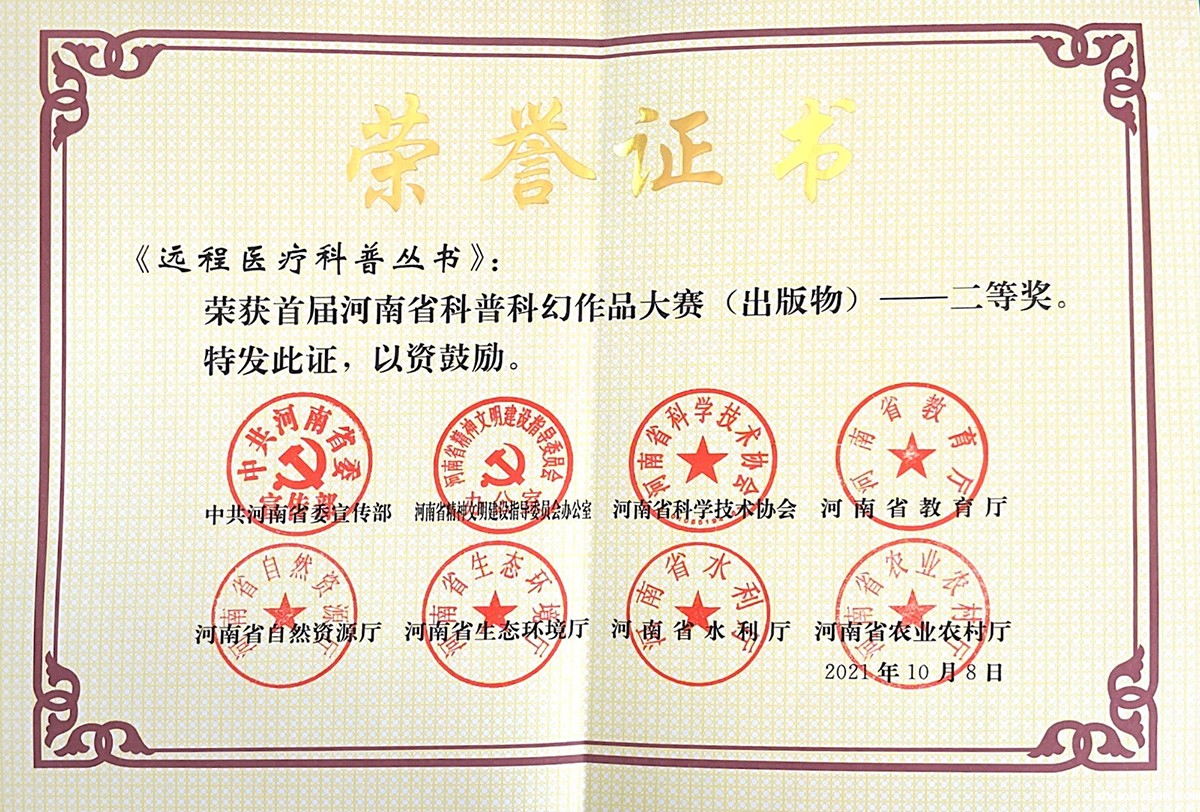 荣誉证书
《远程医疗科普丛书》：
荣获首届河南省科普科幻作品大赛（出版物）——二等奖。
特发此证，以资鼓励。
中共河南省委宣传部
河南省精神文明建设指导委员会办公室
河南省科学技术协会
河南省教育厅
中共河南省委宣传部 河南省精神文明建设指导委员会办公室 河南省科学技术协会 河南省教育厅
河南省自然资源厅
河南省生态环境厅
河南省水利厅
河南省农业农村厅
河南省自然资源厅 河南省生态环境厅 河南省水利厅 河南省农业农村厅
2021年10月8日